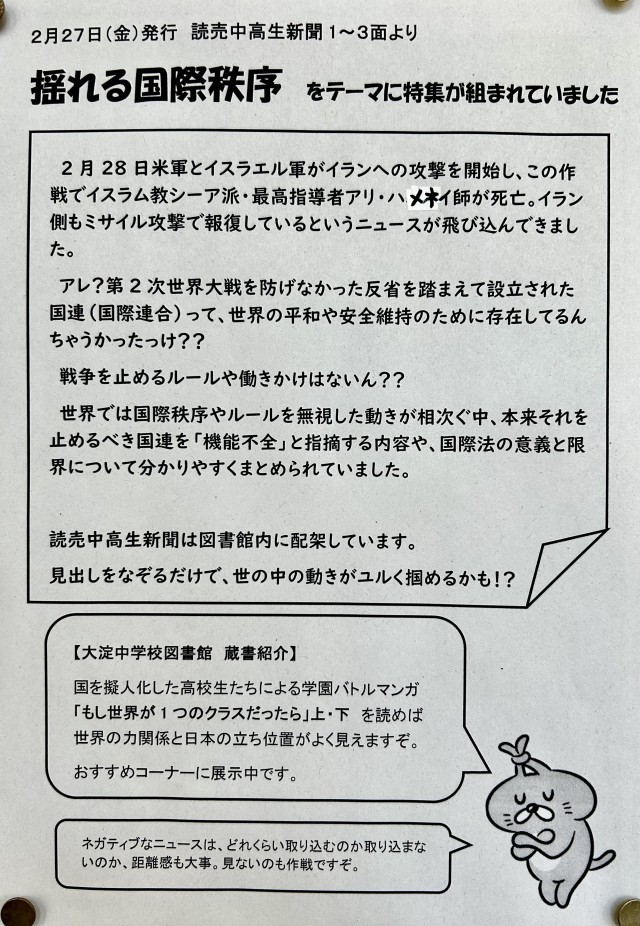 2月27日(金)発行 読売中高生新聞1～3面より
揺れる国際秩序 をテーマに特集が組まれていました
2月28日米軍とイスラエル軍がイランへの攻撃を開始し、この作
戦でイスラム教シーア派・最高指導者アリ・ハメネイ師が死亡。イラン
側もミサイル攻撃で報復しているというニュースが飛び込んできまし
た。
アレ?第2次世界大戦を防げなかった反省を踏まえて設立された
国連(国際連合)って、世界の平和や安全維持のために存在してるん
ちゃうかったっけ??
戦争を止めるルールや働きかけはないん??
世界では国際秩序やルールを無視した動きが相次ぐ中、本来それを
止めるべき国連を「機能不全」と指摘する内容や、国際法の意義と限
界について分かりやすくまとめられていました。
読売中高生新聞は図書館内に配架しています。
見出しをなぞるだけで、世の中の動きがユルく掴めるかも!?
【大淀中学校図書館 蔵書紹介】
国を擬人化した高校生たちによる学園バトルマンガ
「もし世界が1つのクラスだったら」上・下 を読めば
世界の力関係と日本の立ち位置がよく見えますぞ。
おすすめコーナーに展示中です。
ネガティブなニュースは、どれくらい取り込むのか取り込まな
いのか、距離感も大事。見ないのも作戦ですぞ。